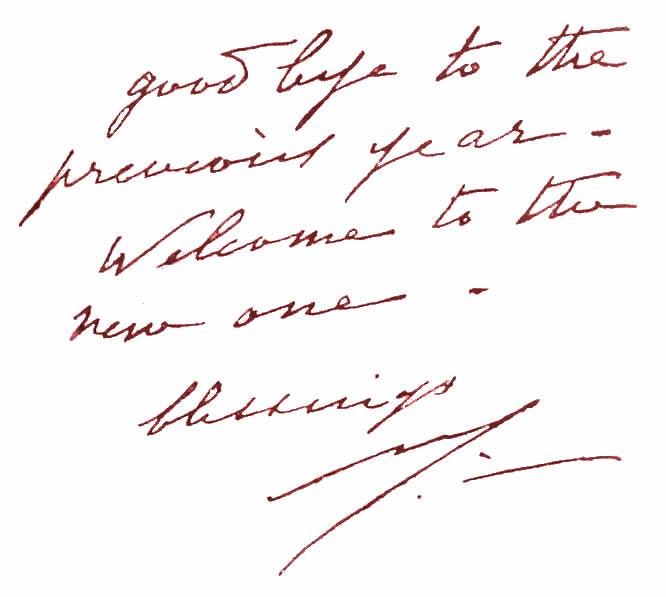 good bye to the
previous year -
Welcome to the
new one -
blessings